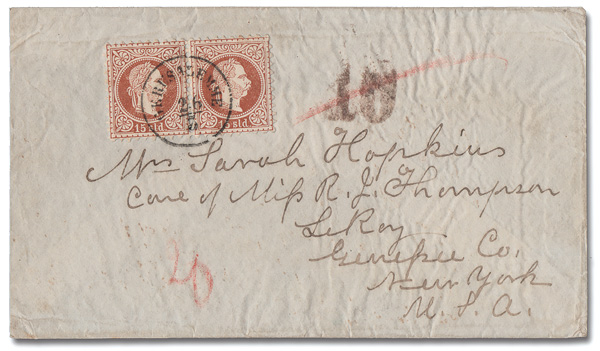 15 sld 15 sld
Mrs Sarah Hopkins
Care of Miss R. J. Thompson
LeRoy
Genesee Co.
New York
U. S. A.